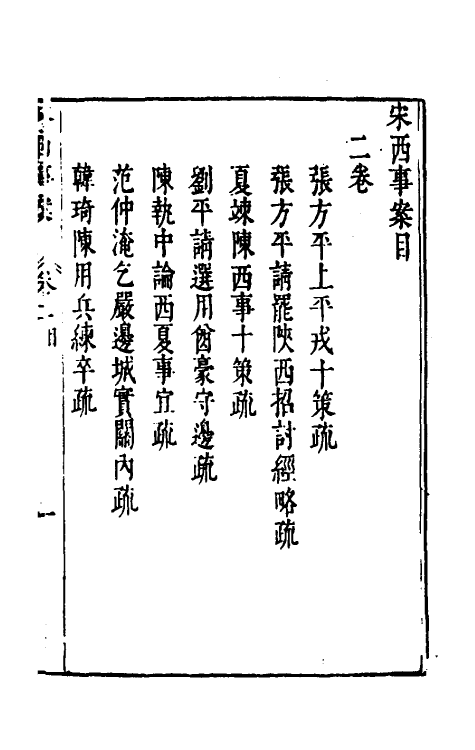 宋西事案目
二卷
張方平上平戎十策疏
張方平請罷陜西招討經略疏
夏竦陳西事十策疏
劉平請選用酋豪守邊疏
陳執中論西夏事宜疏
范仲淹乞嚴邊城實關內疏
韓琦陳用兵練卒疏
一